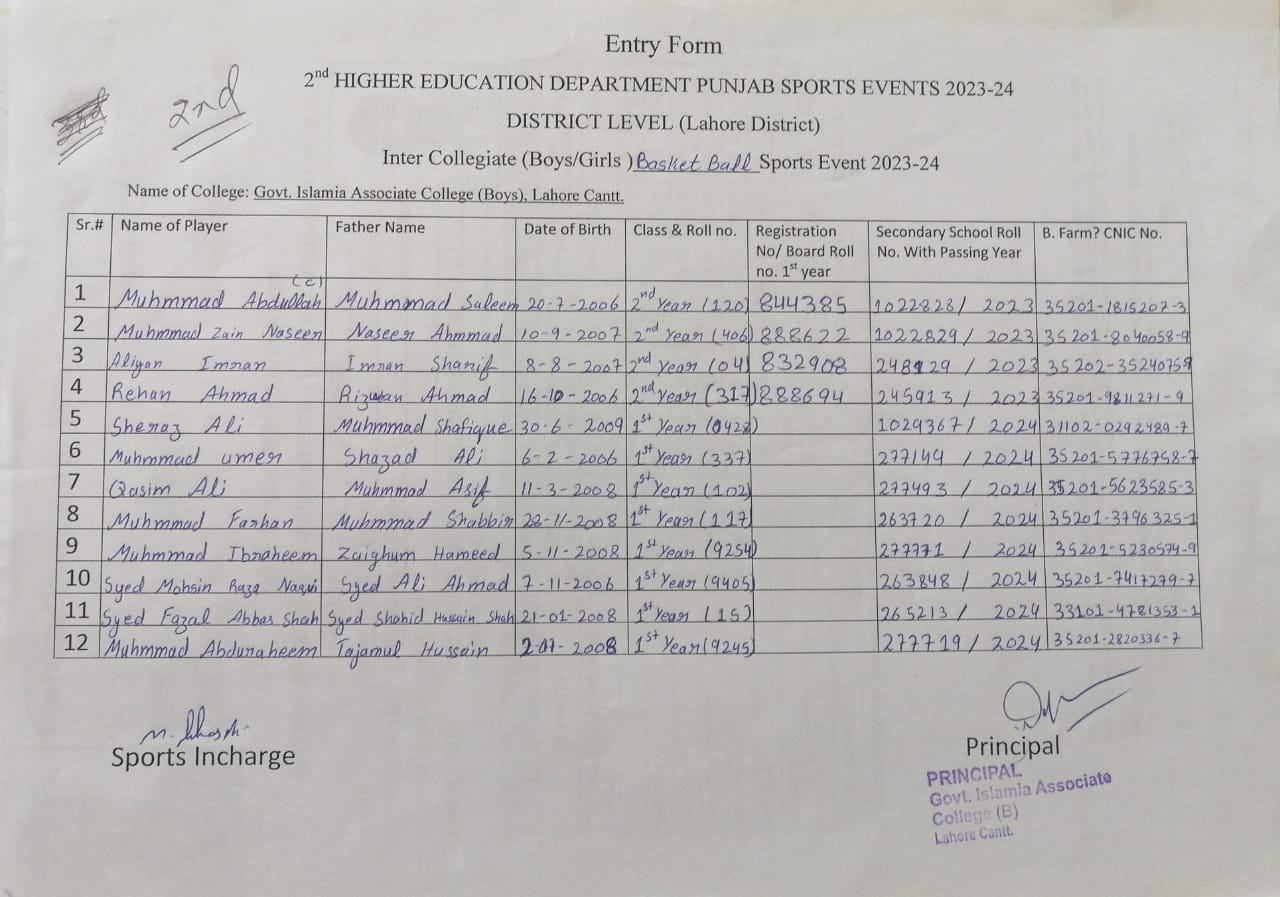 Entry Form
2nd
2nd HIGHER EDUCATION DEPARTMENT PUNJAB SPORTS EVENTS 2023-24
DISTRICT LEVEL (Lahore District)
Inter Collegiate (Boys/Girls ) Basket Ball Sports Event 2023-24
Name of College: Govt. Islamia Associate College (Boys), Lahore Cantt.
Sr.# Name of Player Father Name Date of Birth Class & Roll no. Registration No/ Board Roll no. 1st year Secondary School Roll No. With Passing Year B. Farm? CNIC No.
1 Muhmmad Abdullah (c) Muhmmad Saleem 20-7-2006 2nd Year (120) 844385 1022828/ 2023 35201-1815207-3
2 Muhmmad Zain Naseer Naseer Ahmmad 10-9-2007 2nd Year (406) 888622 1022829/ 2023 35201-8040058-9
3 Aliyan Imran Imran Sharif 8-8-2007 2nd Year (04) 832908 248929 / 2023 35202-35240759
4 Rehan Ahmad Rizwan Ahmad 16-10-2006 2nd Year (317) 888694 245913 / 2023 35201-9811271-9
5 Sheraz Ali Muhmmad Shafique 30-6-2009 1st Year (0428) 1029367/ 2024 31102-0292489-7
6 Muhmmad umer Shazad Ali 6-2-2006 1st Year (337) 277149 / 2024 35201-5776758-7
7 Qasim Ali Muhmmad Asif 11-3-2008 1st Year (102) 277493 / 2024 35201-5623585-3
8 Muhmmad Farhan Muhmmad Shabbir 28-11-2008 1st Year (117) 263720 / 2024 35201-3796325-1
9 Muhmmad Ibraheem Zaighum Hameed 5-11-2008 1st Year (9254) 277771 / 2024 35201-5230574-9
10 Syed Mohsin Raza Naqvi Syed Ali Ahmad 7-11-2006 1st Year (9405) 263848 / 2024 35201-7417279-7
11 Syed Fazal Abbas Shah Syed Shahid Hussain Shah 21-01-2008 1st Year (15) 265213 / 2024 33101-4781353-1
12 Muhmmad Abduraheem Tajamul Hussain 2-07-2008 1st Year (9245) 277719/ 2024 35201-2820336-7
Sports Incharge
Principal
PRINCIPAL
Govt. Islamia Associate
College (B)
Lahore Cantt.